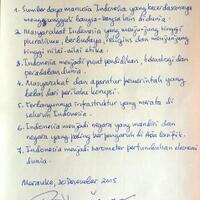 1. Sumber daya manusia Indonesia yang kecerdasannya
mengungguli bangsa-bangsa lain di dunia.
2. Masyarakat Indonesia yang menjunjung tinggi
pluralisme, berbudaya, religius dan menjunjung
tinggi nilai-nilai etika.
3. Indonesia menjadi pusat pendidikan, teknologi dan
peradaban dunia.
4. Masyarakat dan aparatur pemerintah yang
bebas dari perilaku korupsi.
5. Terbangunnya infrastruktur yang merata di
seluruh Indonesia.
6. Indonesia menjadi negara yang mandiri dan
negara yang paling berpengaruh di Asia Pasifik.
7. Indonesia menjadi barometer pertumbuhan ekonomi
dunia.
Merauke, 30 Desember 2015